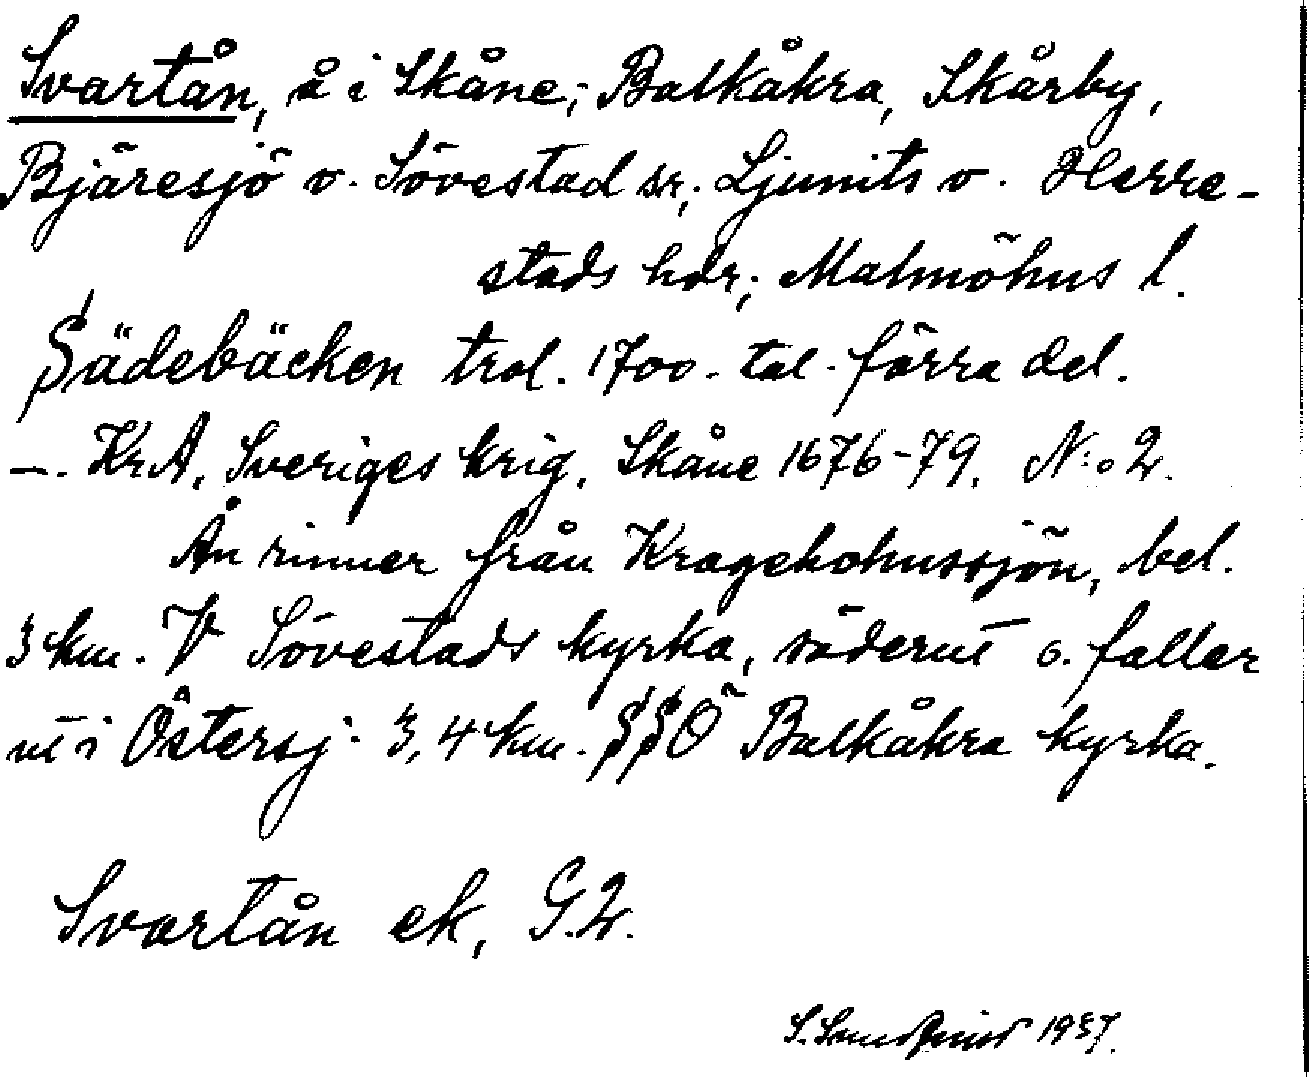 Svartån, å i Skåne; Balkåkra, Skårby,
Bjäresjö o. Sövestad sr; Ljunits o. Herre-
stads hdr; Malmöhus l.
Sädebäcken trol. 1700-tal. förra del.
—. KrA, Sveriges krig, Skåne 1676-79, N:o 2.
Ån rinner från Krageholmssjön, bel.
3 km. V Sövestads kyrka, söderut o. faller
ut i Östersj. 3,4 km. SSÖ Balkåkra kyrka.
Svartån ek, G.2.
1937.